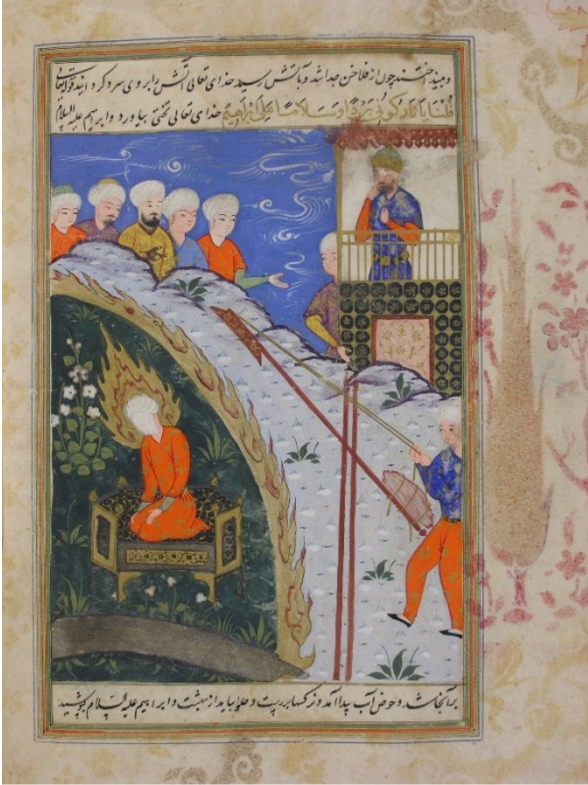 و بینداختند چون از فلاخن جدا شد و بآتش رسید خدای تعالی آتش را بر وی سرد کردانید قوله تعالی
قلنا یا نار کونی بردا و سلاما علی ابراهیم خدای تعالی تختی بیاورد و ابراهیم علیه السلام
بر آنجا شد و حوض آب پیدا آمد و نرکسها بررست و حله بیامد از بهشت و ابراهیم علیه السلام بپوشید